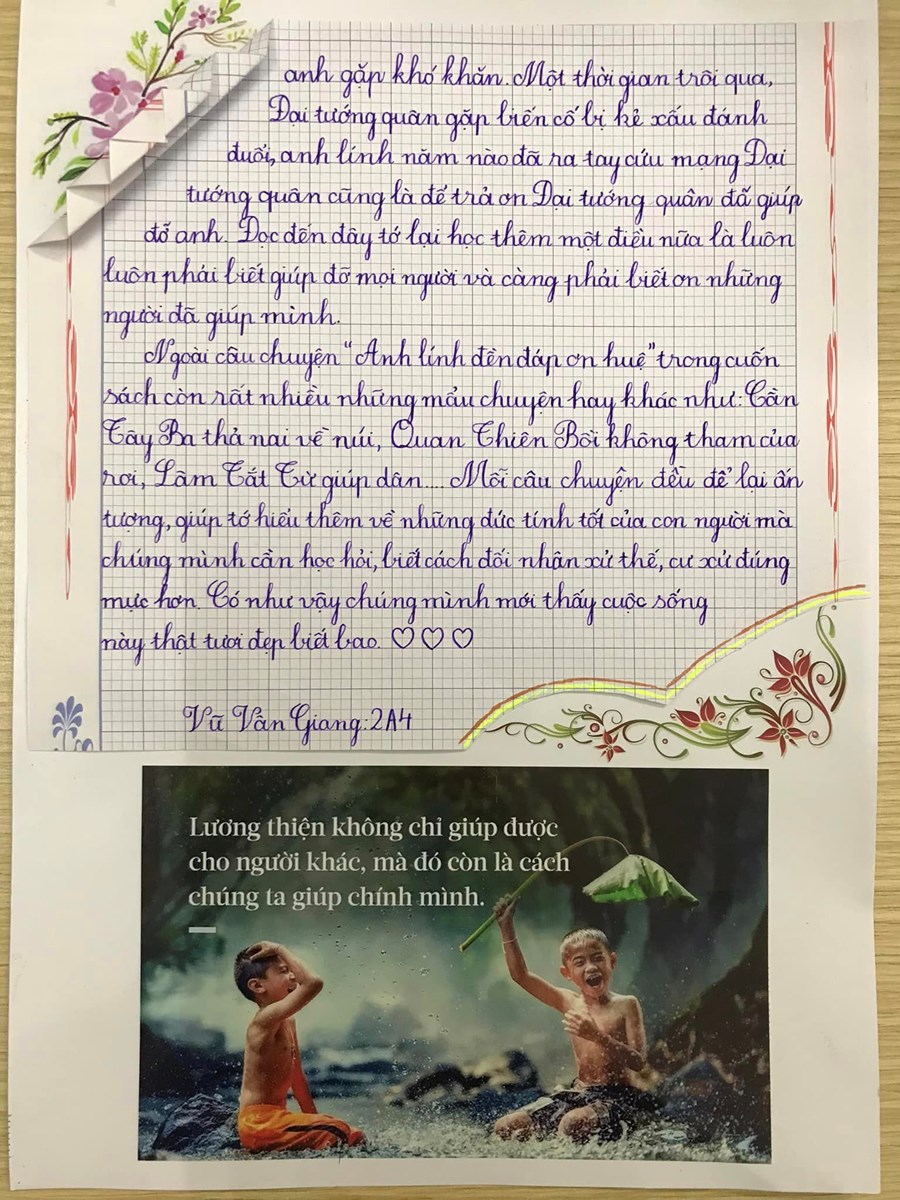 anh gặp khó khăn. Một thời gian trôi qua,
Đại tướng quân gặp biến cố bị kẻ xấu đánh
đuổi, anh lính năm nào đã ra tay cứu mạng Đại
tướng quân cũng là để trả ơn Đại tướng quân đã giúp
đỡ anh. Đọc đến đây tớ lại học thêm một điều nữa là luôn
luôn phải biết giúp đỡ mọi người và càng phải biết ơn những
người đã giúp mình.
Ngoài câu chuyện "Anh lính đền đáp ơn huệ" trong cuốn
sách còn rất nhiều những mẩu chuyện hay khác như: Tần
Tây Ba thả nai về núi, Quan Thiên Bồi không tham của
rơi, Lâm Tắt Từ giúp dân.... Mỗi câu chuyện đều để lại ấn
tượng, giúp tớ hiểu thêm về những đức tính tốt của con người mà
chúng mình cần học hỏi, biết cách đối nhân xử thế, cư xử đúng
mực hơn. Có như vậy chúng mình mới thấy cuộc sống
này thật tươi đẹp biết bao. ♡ ♡ ♡
Vũ Vân Giang: 2A4
Lương thiện không chỉ giúp được
cho người khác, mà đó còn là cách
chúng ta giúp chính mình.